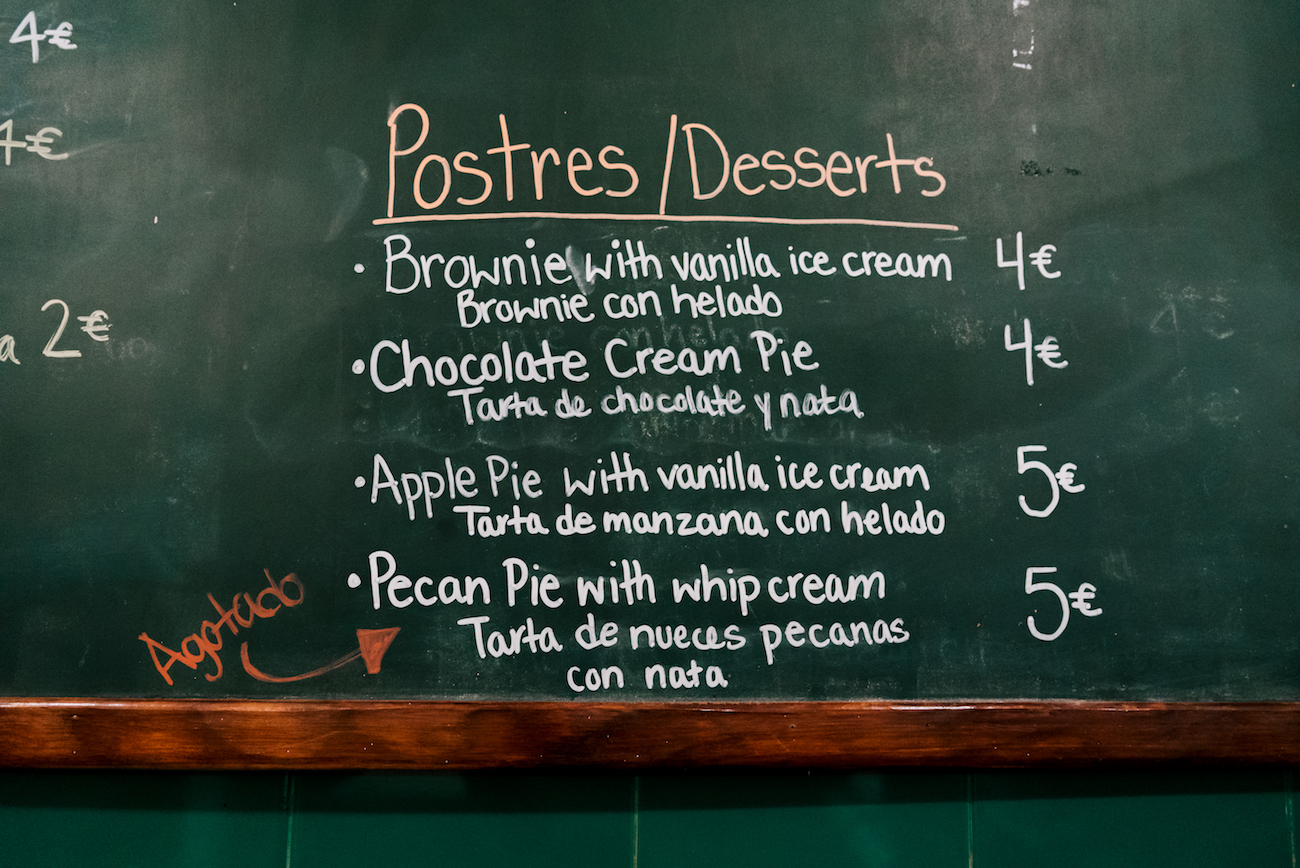 4€
4€
a 2€
Postres/Desserts
• Brownie with vanilla ice cream 4€
Brownie con helado
• Chocolate Cream Pie 4€
Tarta de chocolate y nata
• Apple Pie with vanilla ice cream 5€
Tarta de manzana con helado
• Pecan Pie with whip cream 5€
Tarta de nueces pecanas
con nata
Agotado